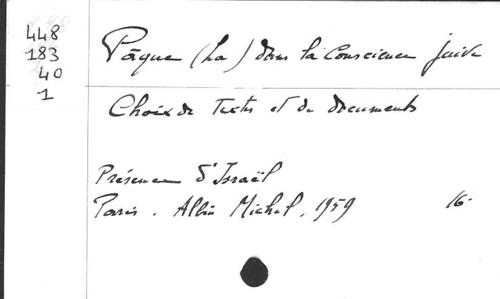 448
183
40
1
Pâque (La) dans la Conscience juive
Choix de Textes et de documents
Présence d'Israël
Paris. Albin Michel, 1959 16.